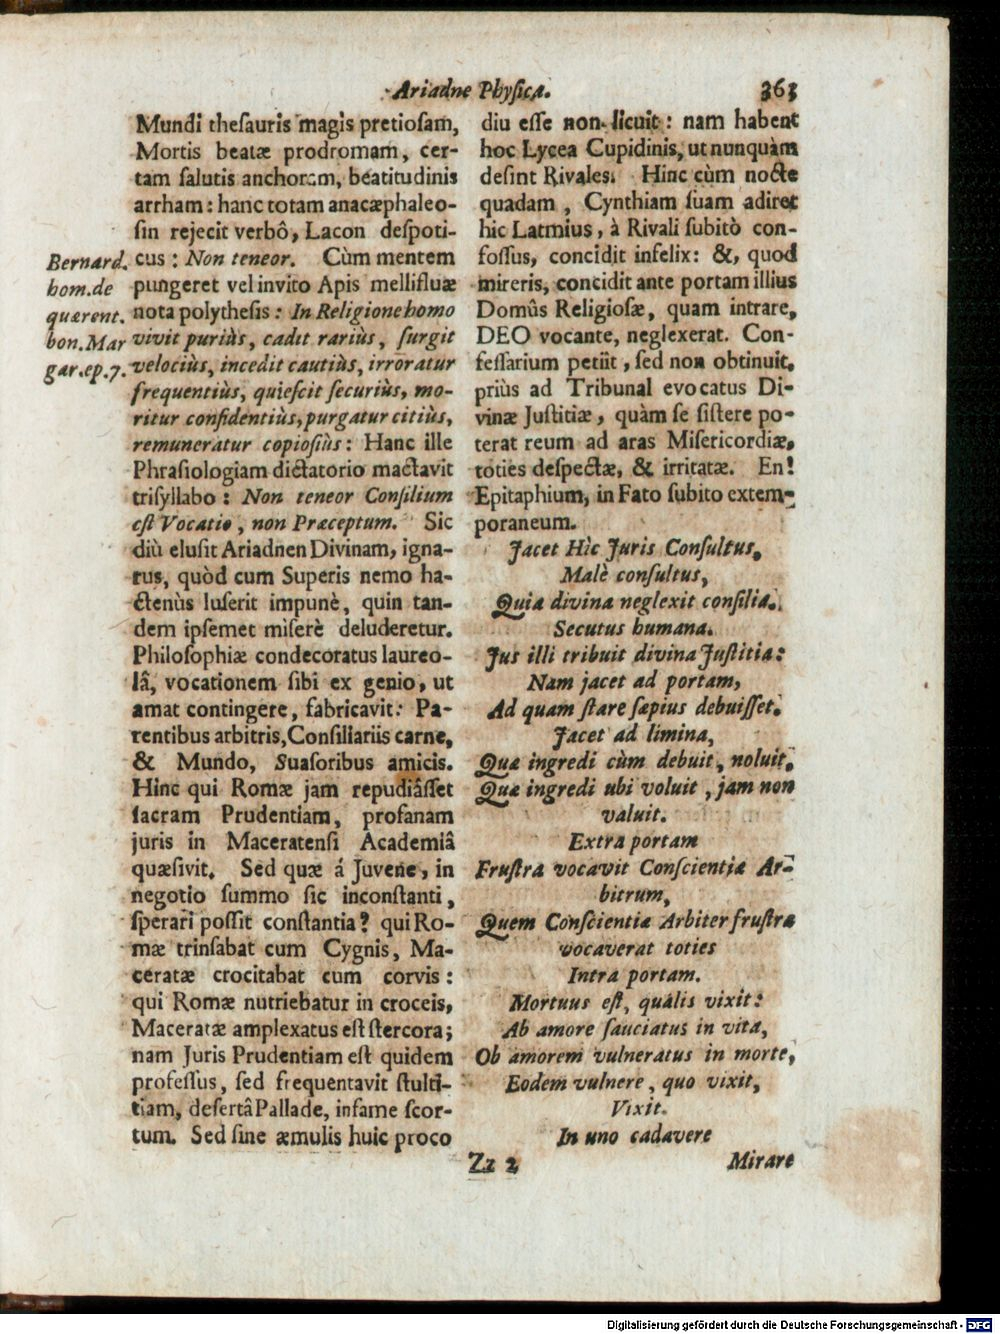 Ariadne Physica. 363
Mundi thesauris magis pretiosam,
Mortis beatæ prodromam, cer-
tam salutis anchoram, beatitudinis
arrham: hanc totam anacæphaleo-
sin rejecit verbô, Lacon despoti-
cus: Non teneor. Cùm mentem
pungeret vel invito Apis mellifluæ
nota polythesis: In Religione homo
vivit puriùs, cadit rariùs, surgit
velociùs, incedit cautiùs, irroratur
frequentiùs, quiescit securiùs, mo-
ritur confidentiùs, purgatur citiùs,
remuneratur copiosiùs: Hanc ille
Phrasiologiam dictatorio mactavit
trisyllabo: Non teneor Consilium
est Vocatio, non Præceptum. Sic
diù elusit Ariadnen Divinam, igna-
rus, quòd cum Superis nemo ha-
ctenùs luserit impunè, quin tan-
dem ipsemet miserè deluderetur.
Philosophiæ condecoratus laureo-
lâ, vocationem sibi ex genio, ut
amat contingere, fabricavit: Pa-
rentibus arbitris, Consiliariis carne,
& Mundo, Suasoribus amicis.
Hinc qui Romæ jam repudiâsset
sacram Prudentiam, profanam
juris in Maceratensi Academiâ
quæsivit. Sed quæ á Juvene, in
negotio summo sic inconstanti,
sperari possit constantia? qui Ro-
mæ trinsabat cum Cygnis, Ma-
ceratæ crocitabat cum corvis:
qui Romæ nutriebatur in croceis,
Maceratæ amplexatus est stercora;
nam Juris Prudentiam est quidem
professus, sed frequentavit stulti-
tiam, desertâ Pallade, infame scor-
tum. Sed sine æmulis huic proco
Bernard.
hom. de
quærent.
bon. Mar
gar. ep. 7.
diu esse non licuit: nam habent
hoc Lycea Cupidinis, ut nunquàm
desint Rivales. Hinc cùm nocte
quadam, Cynthiam suam adiret
hic Latmius, à Rivali subitò con-
fossus, concidit infelix: &, quod
mireris, concidit ante portam illius
Domûs Religiosæ, quam intrare,
DEO vocante, neglexerat. Con-
fessarium petiit, sed non obtinuit,
priùs ad Tribunal evocatus Di-
vinæ Justitiæ, quàm se sistere po-
terat reum ad aras Misericordiæ,
toties despectæ, & irritatæ. En!
Epitaphium, in Fato subito extem-
poraneum.
Jacet Hìc Juris Consultus,
Malè consultus,
Quia divina neglexit consilia.
Secutus humana.
Jus illi tribuit divina Justitia:
Nam jacet ad portam,
Ad quam stare sæpius debuisset.
Jacet ad limina,
Quæ ingredi cùm debuit, noluit,
Quæ ingredi ubi voluit, jam non
valuit.
Extra portam
Frustra vocavit Conscientiæ Ar-
bitrum,
Quem Conscientiæ Arbiter frustra
vocaverat toties
Intra portam.
Mortuus est, qualis vixit:
Ab amore sauciatus in vita,
Ob amorem vulneratus in morte,
Eodem vulnere, quo vixit,
Vixit.
In uno cadavere
Zz 2 Mirare
Digitalisierung gefördert durch die Deutsche Forschungsgemeinschaft - DFG